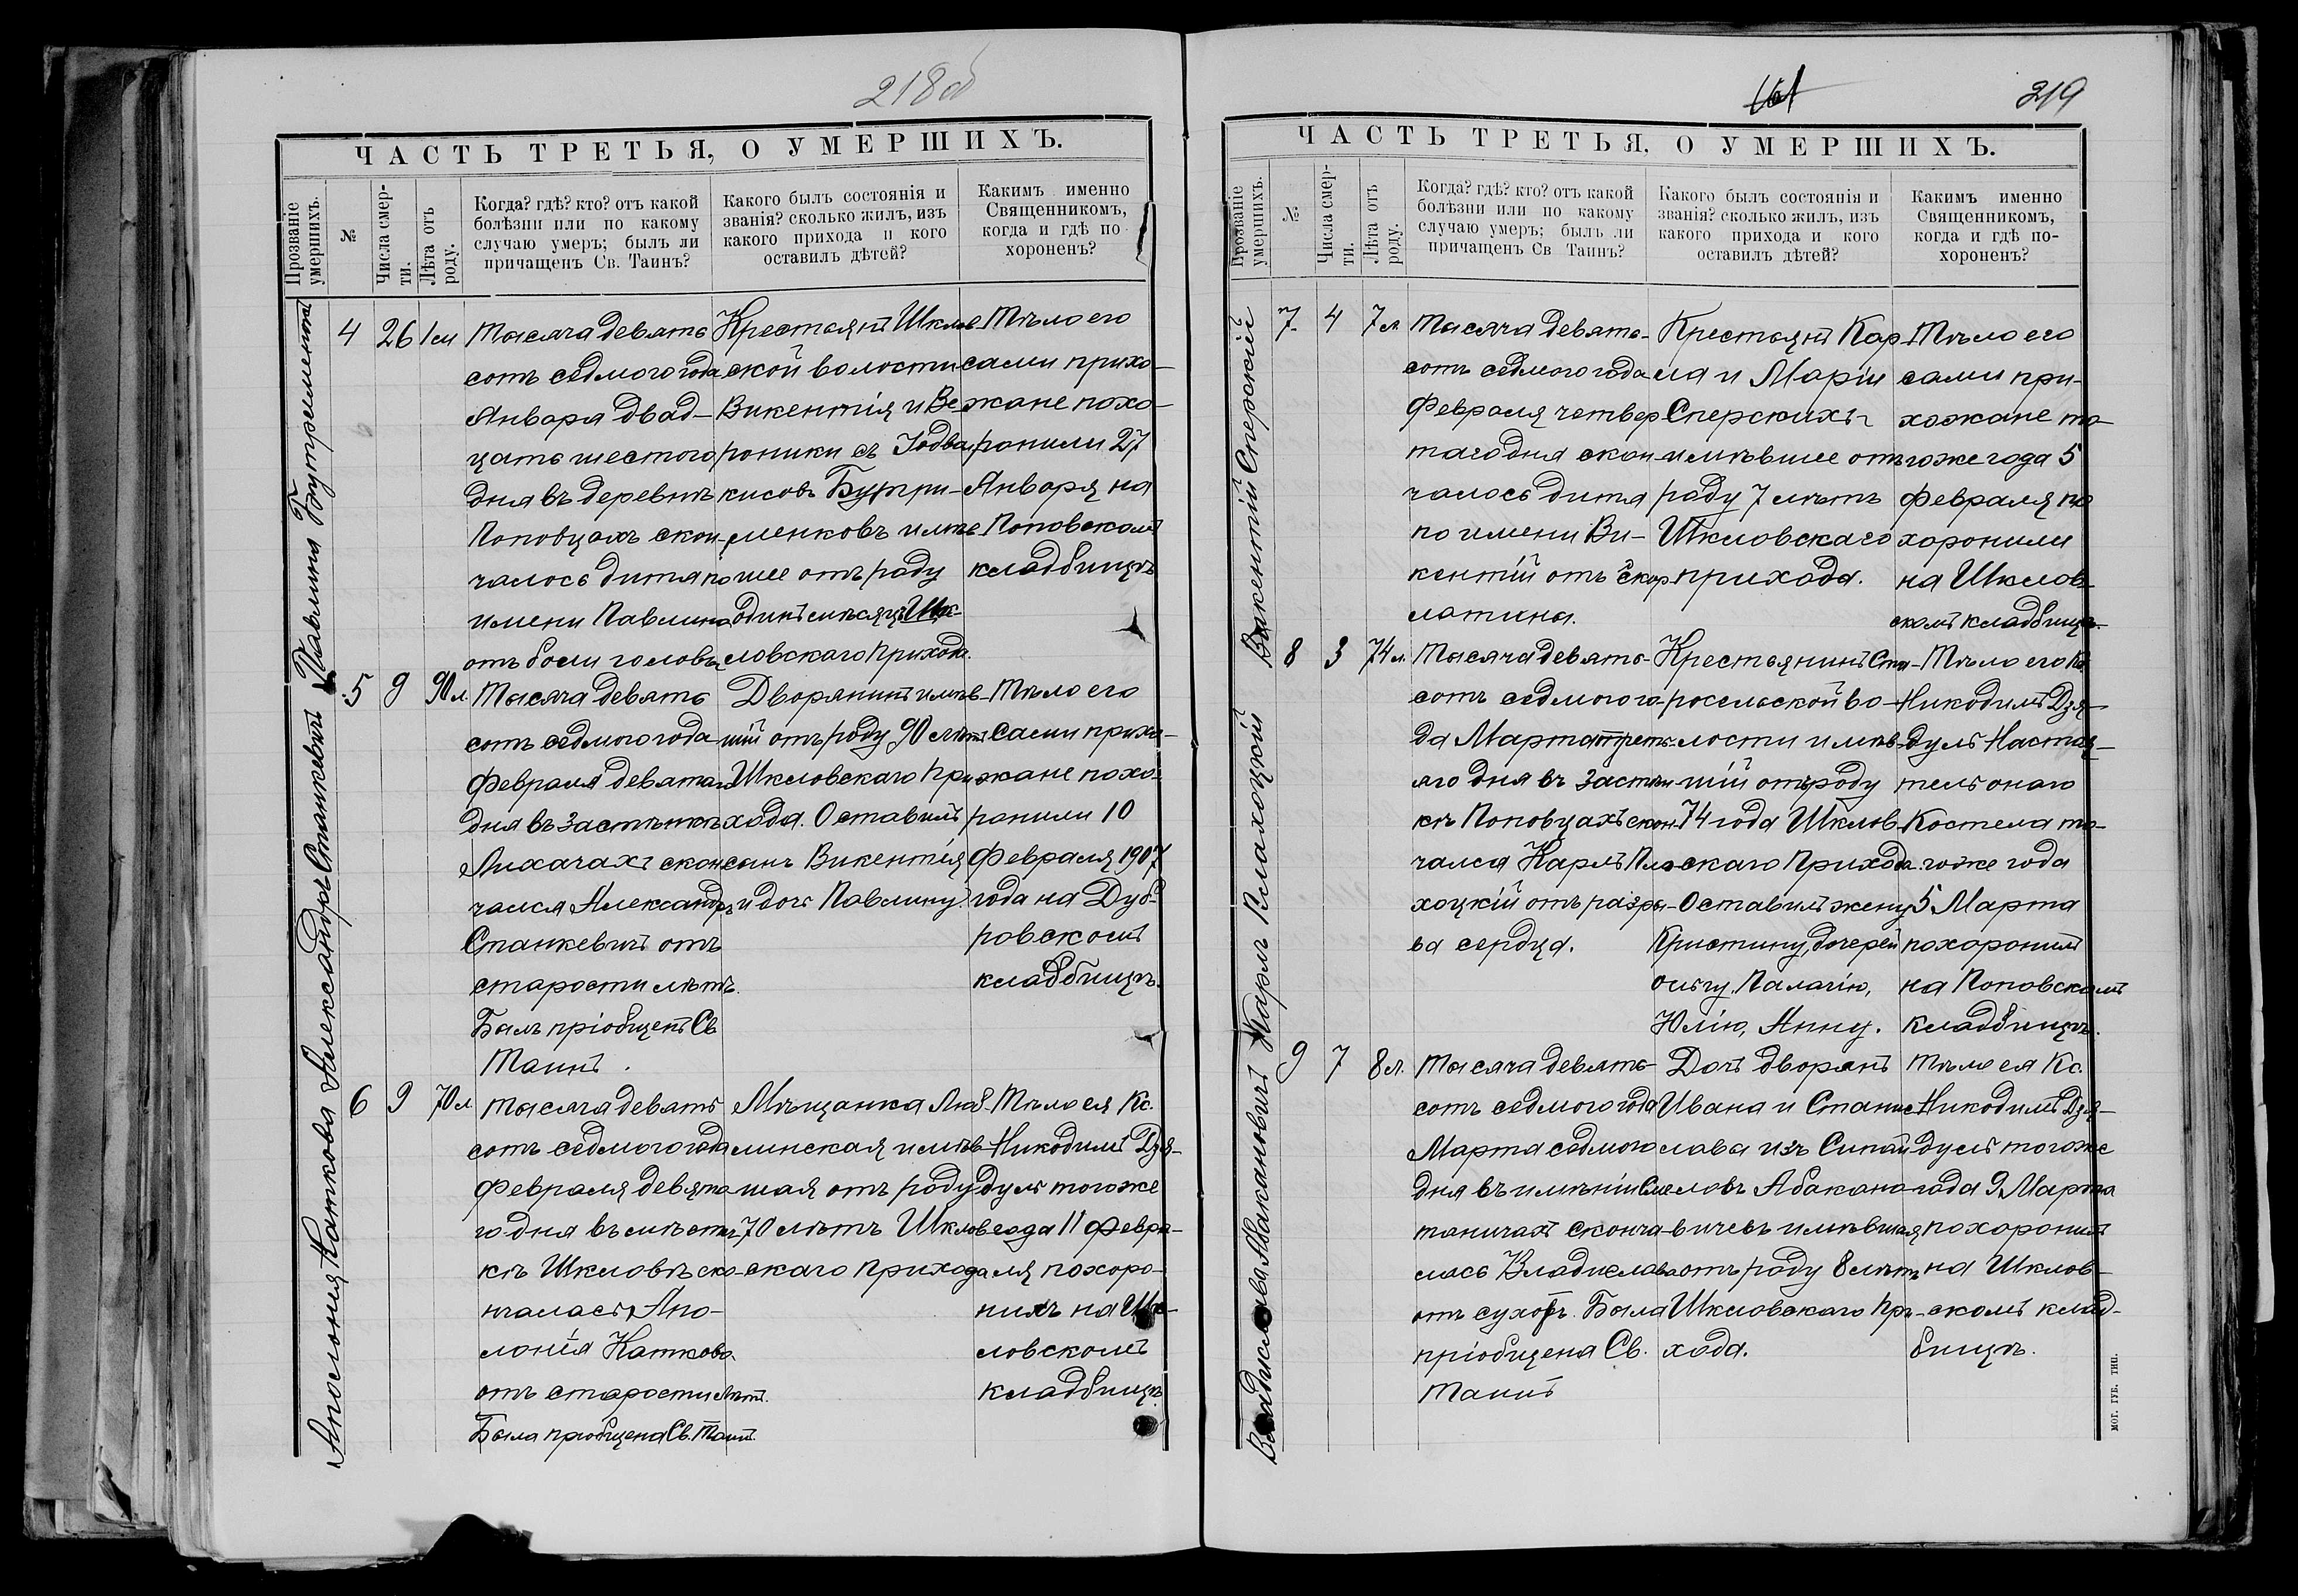 218об
ЧАСТЬ ТРЕТЬЯ, О УМЕРШИХЪ.
Прозваніе умершихъ.
№
Числа смер-
ти.
Лѣта отъ
роду.
Когда? гдѣ? кто? отъ какой
болѣзни или по какому
случаю умеръ; былъ ли
причащенъ Св. Таинъ?
Какого былъ состоянія и
званія? сколько жилъ, изъ
какого прихода и кого
оставилъ дѣтей?
Какимъ именно
Священникомъ,
когда и гдѣ по
хороненъ?
Павлина
4
26
1 м
Тысяча девять
сотъ седмого года
Января двад-
цать шестого
дня въ деревнѣ
Поповцахъ скон-
чалось дитя по
имени Павлина
отъ боли головы
Крестьянъ Шклов
ской волости
Викентія и Ве
роники съ
Бутри-
менковъ имѣв
шее отъ роду
одинъ мѣсяцъ Шк-
ловскаго прихода.
Тѣло его
сами прихо-
жане похо-
ронили 27
Января на
Поповскомъ
кладбищѣ
Александръ Станкевичъ
5
9
90 л.
Тысяча девять
сотъ седмого года
Февраля девятаго
дня въ застѣнкѣ
Лихачахъ скон
чался Александръ
Станкевичъ отъ
старости лѣтъ.
Былъ пріобщенъ Св
Таинъ.
Дворянинъ имѣв
шій отъ роду 90 лѣтъ
Шкловскаго при
хода. Оставилъ
сынъ Викентія
и дочь Павлину.
Тѣло его
сами прихо-
жане похо-
ронили 10
Февраля 1907
года на Дуб-
ровскомъ
кладбищѣ.
Аполонія Каткова
6
9
70 л
Тысяча девять
сотъ седмого года
Февраля девята
го дня въ мѣстеч
кѣ Шкловѣ ско-
нчалась Апо-
лонія Каткова
отъ старости лѣтъ.
Была пріобщена Св. Таинъ.
Мѣщанка Люб-
линская имѣв-
шая отъ роду
70 лѣтъ Шклов
скаго прихода
Тѣло ея Кс.
Никодимъ Дзя-
дуль тогоже
года 11 Февра-
ля похоро-
нилъ на Шк-
ловскомъ
кладбищѣ.
219
ЧАСТЬ ТРЕТЬЯ, О УМЕРШИХЪ.
Прозваніе умершихъ.
№
Числа смер-
ти.
Лѣта отъ
роду.
Когда? гдѣ? кто? отъ какой
болѣзни или по какому
случаю умеръ; былъ ли
причащенъ Св Таинъ?
Какого былъ состоянія и
званія? сколько жилъ, изъ
какого прихода и кого
оставилъ дѣтей?
Какимъ именно
Священникомъ,
когда и гдѣ по-
хороненъ?
Викентій Сперскій
7
4
7 л.
Тысяча девять-
сотъ седмого года
Февраля четвер
таго дня скон-
чалось дитя
по имени Ви-
кентій отъ скар
латины.
Крестьянъ Кар-
ла и Маріи
Сперскихъ
имѣвшее отъ
роду 7 лѣтъ
Шкловскаго
прихода.
Тѣло его
сами при-
хожане то-
гоже года 5
Февраля по
хоронили
на Шклов-
скомъ кладбищѣ.
Карлъ Плахоцкій
8
3
74 л.
Тысяча девять-
сотъ седмого го-
да Марта треть-
яго дня въ застѣн
кѣ Поповцахъ скон-
чался Карлъ Пла-
хоцкій отъ разры-
ва сердца.
Крестьянинъ Ста-
росельской во-
лости имѣв-
шій отъ роду
74 года Шклов-
скаго Прихода.
Оставилъ жену
Кристину, дочерей
Ольгу, Палагію,
Юлію, Анну.
Тѣло его Кс
Никодимъ Дзя-
дуль Настоя-
тель онаго
Костела то-
гоже года
5 Марта
похоронилъ
на Поповскомъ
кладбищѣ.
Владислава Абакановичъ
9
7
8 л.
Тысяча девять-
сотъ седмого года
Марта седмого
дня въ имѣніи
скон­ча-
лась Владислава
отъ сухотъ. Была
пріобщена Св.
Таинъ
Дочь дворянъ
Ивана и Станис
лава изъ
Абакано-
вичевъ имѣвшая
отъ роду 8 лѣтъ
Шкловскаго при-
хода.
Тѣло ея Кс.
Никодимъ Дзя-
дуль тогоже
года 9 Марта
похоронилъ
на Шклов-
скомъ клад-
бищѣ.
МОГ. ГУБ. ТИП.